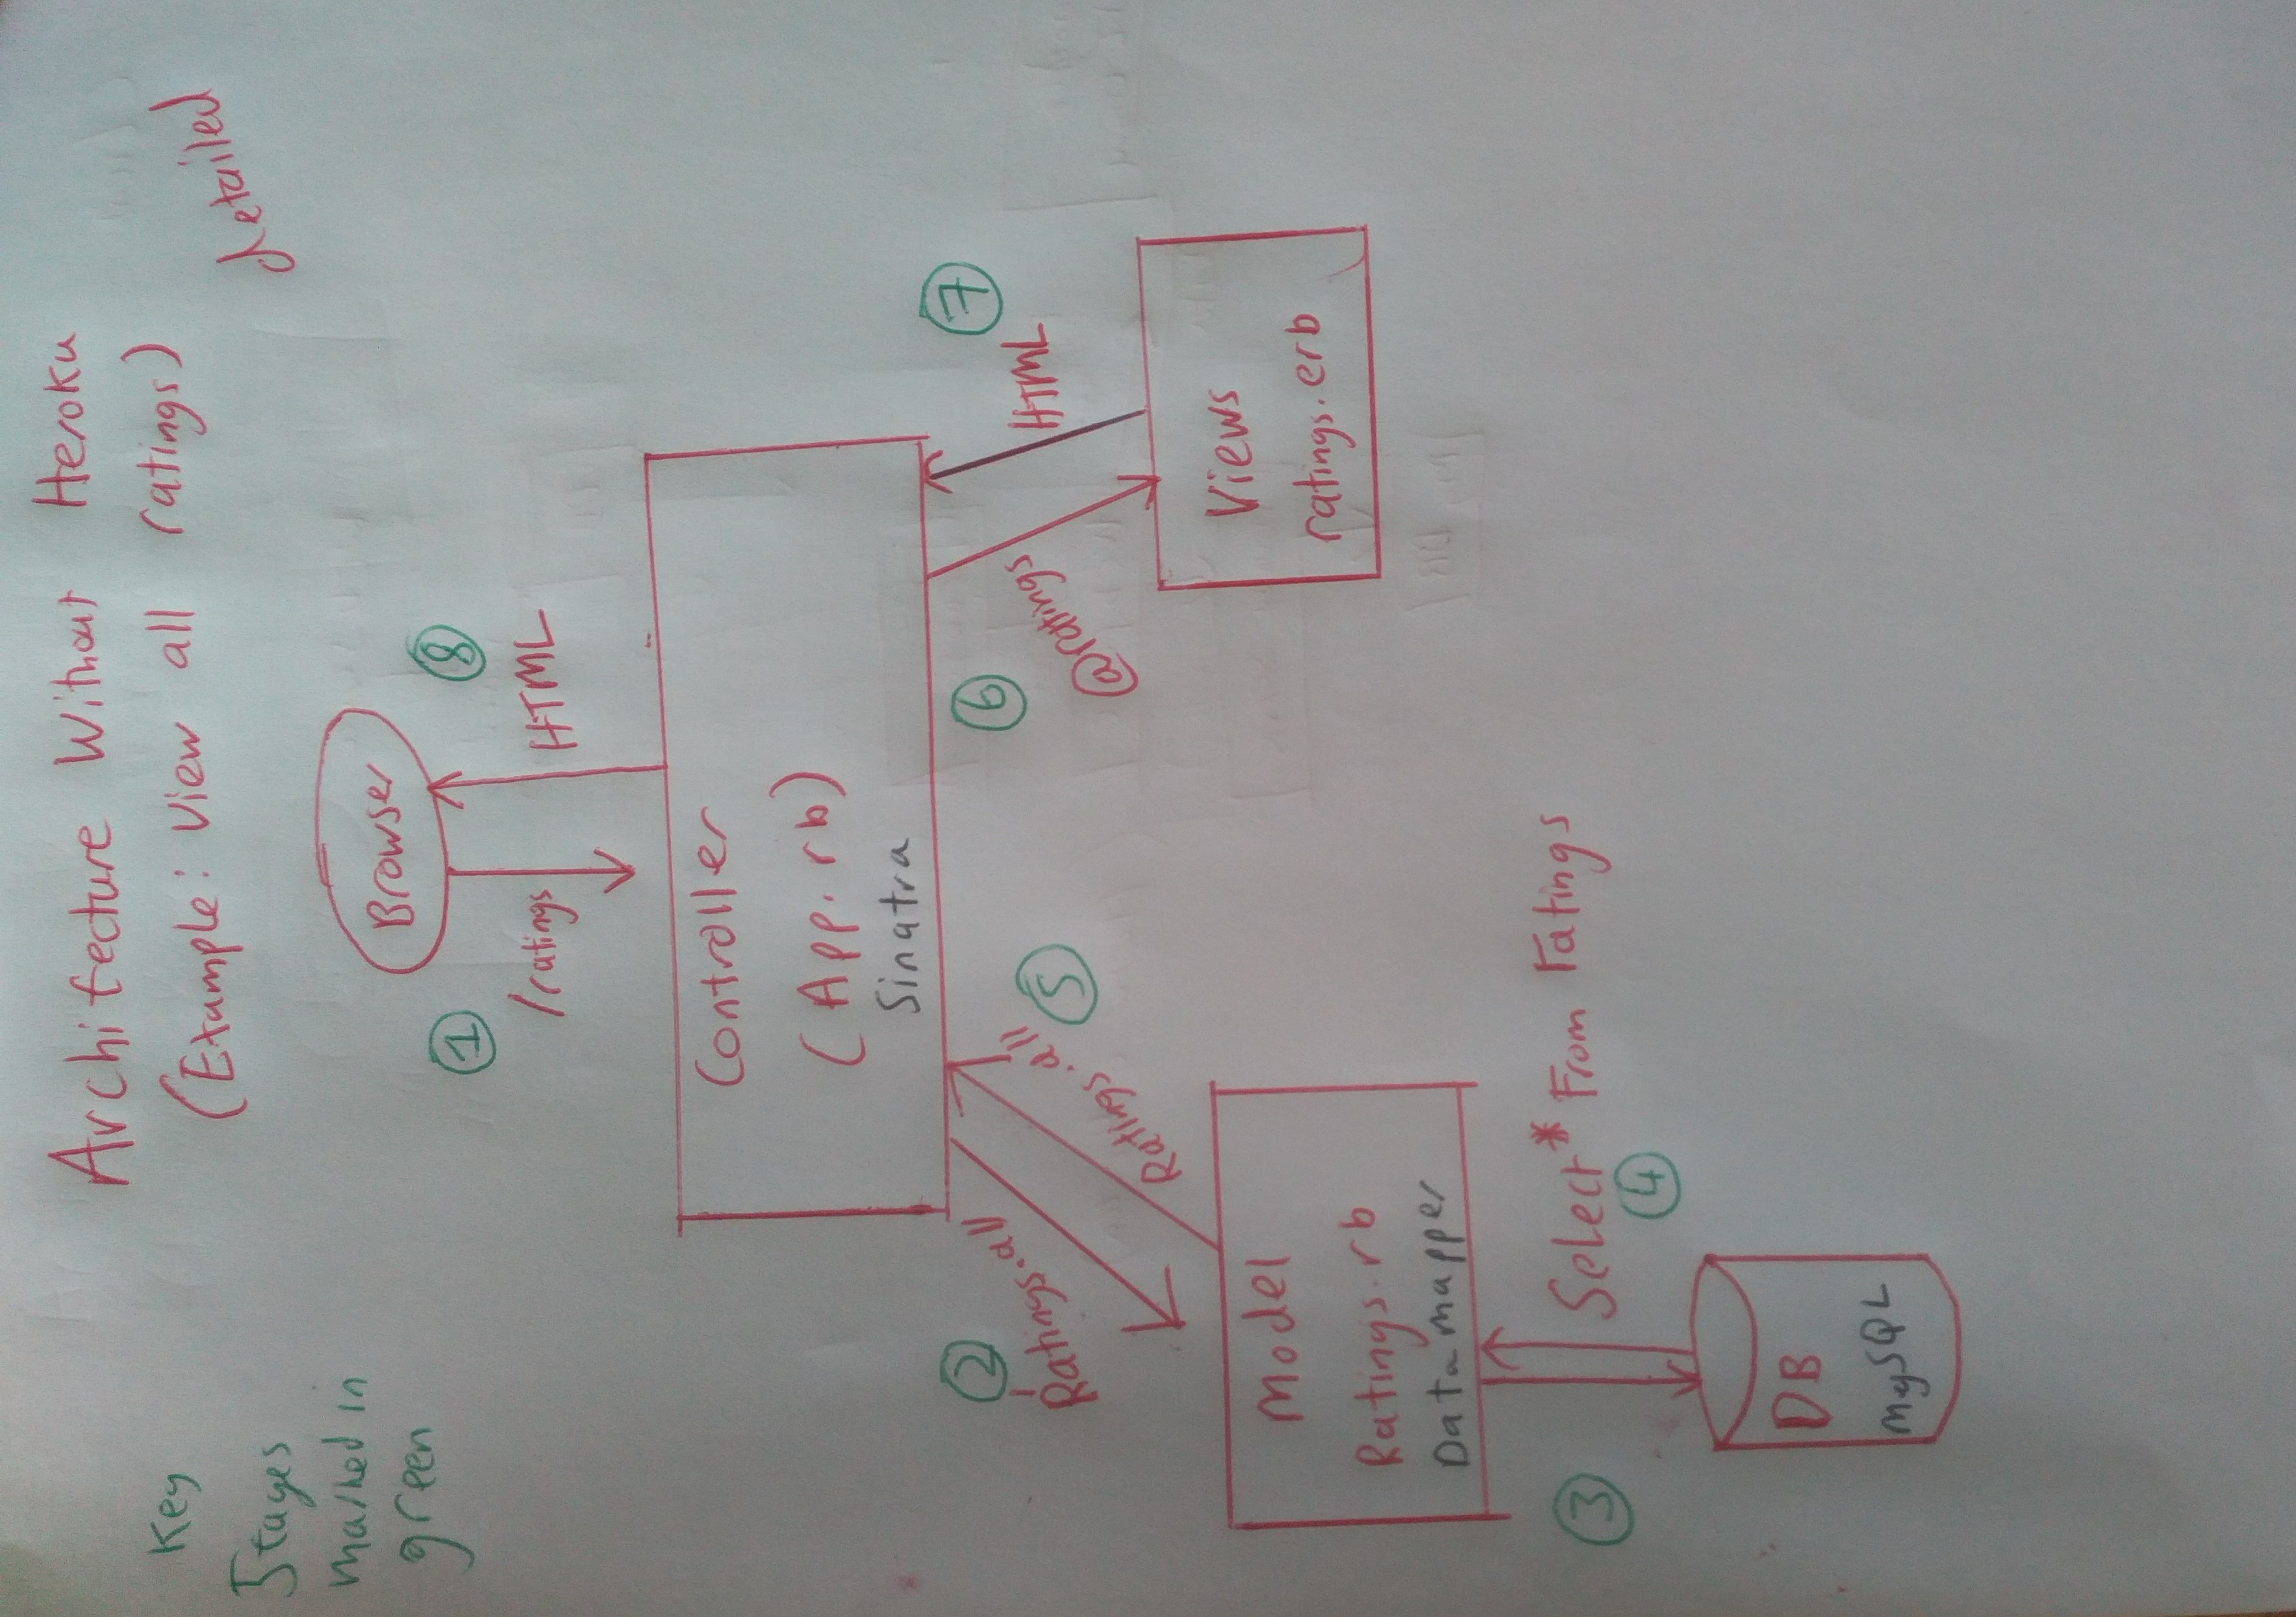 Architecture Without Heroku
(Example: View all ratings)
detailed
Key
Stages
marked in
green
Browser
1
8
/ratings
HTML
Controller
(App.rb)
Sinatra
2
Ratings.all
Ratings.all
5
6
@ratings
7
HTML
Model
Ratings.rb
Datamapper
Views
ratings.erb
3
Select * From ratings
4
DB
MySQL